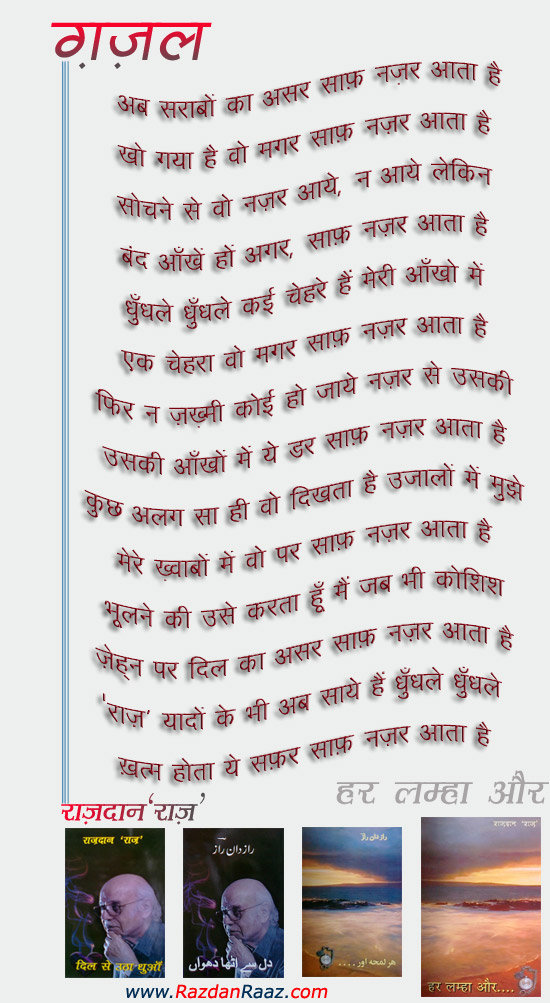 ग़ज़ल
अब सराबों का असर साफ़ नज़र आता है
खो गया है वो मगर साफ़ नज़र आता है
सोचने से वो नज़र आये, न आये लेकिन
बंद आँखें हों अगर, साफ़ नज़र आता है
धुँधले धुँधले कई चेहरे हैं मेरी आँखो में
एक चेहरा वो मगर साफ़ नज़र आता है
फिर न ज़ख़्मी कोई हो जाये नज़र से उसकी
उसकी आँखों में ये डर साफ़ नज़र आता है
कुछ अलग सा ही वो दिखता है उजालों में मुझे
मेरे ख़्वाबों में वो पर साफ़ नज़र आता है
भूलने की उसे करता हूँ मैं जब भी कोशिश
ज़ेह्न पर दिल का असर साफ़ नज़र आता है
'राज़' यादों के भी अब साये हैं धुँधले धुँधले
ख़त्म होता ये सफ़र साफ़ नज़र आता है
हर लम्हा और
राज़दान ‘राज़’
राज़दान ‘राज़’
दिल से उठा धुआँ
راز دان راز
دل سے اٹھا دھواں
راز دان راز
ہر لمحہ اور....
राज़दान ‘राज़’
हर लम्हा और....
www.RazdanRaaz.com